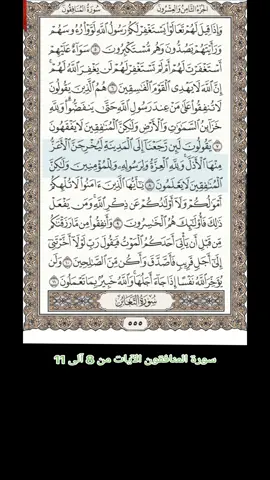 الجزء الثامن والعشرون
سورة المنافقون
وإذا قيل لهم تعالوا يستغفر لكم رسول الله لووا رءوسهم
ورأيتهم يصدون وهم مستكبرون ٥ سواء عليهم
أستغفرت لهم أم لم تستغفر لهم لن يغفر الله لهم
إن الله لا يهدي القوم الفاسقين ٦ هم الذين يقولون
لا تنفقوا على من عند رسول الله حتى ينفضوا ولله
خزائن السماوات والأرض ولكن المنافقين لا يفقهون
٧ يقولون لئن رجعنا إلى المدينة ليخرجن الأعز
منها الأذل ولله العزة ولرسوله وللمؤمنين ولكن
المنافقين لا يعلمون ٨ يا أيها الذين آمنوا لا تلهكم
أموالكم ولا أولادكم عن ذكر الله ومن يفعل
ذلك فأولئك هم الخاسرون ٩ وأنفقوا من ما رزقناكم
من قبل أن يأتي أحدكم الموت فيقول رب لولا أخرتني
إلى أجل قريب فأصدق وأكن من الصالحين ١٠ ولن
يؤخر الله نفسا إذا جاء أجلها والله خبير بما تعملون ١١
سورة التغابن
٥٥٥
سورة المنافقون الآيات من 8 آلى 11